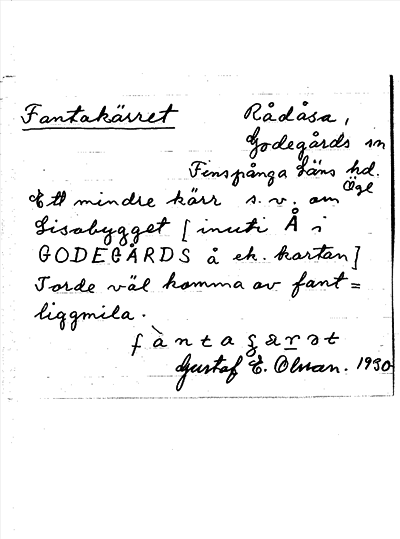 Fantakärret Rådåsa,
Godegårds sn
Finspånga läns hd.
Ögl
Ett mindre kärr s.v. om
Lisabygget [inuti Å i
GODEGÅRDS å ek. kartan]
Torde väl komma av fant=
liggmila.
fàntaʂærət
Gustaf E. Olsson. 1930